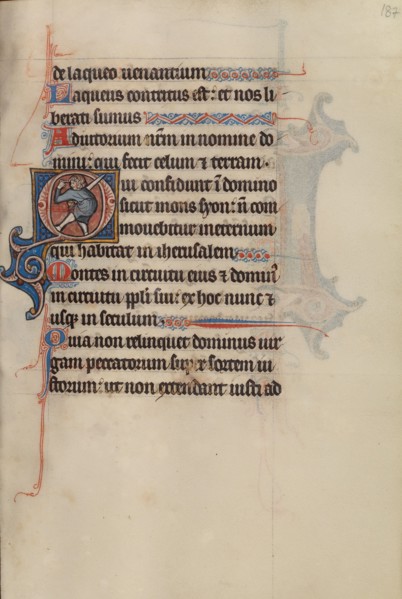 187
de laqueo uenantium
Laqueus contritus est: et nos li
berati sumus
Adiutorium nr̄m in nomine do
mini: qui fecit celum ⁊ terram.
Qui confidunt ī domino
sicut mons syon: n̄ com
mouebitur in eternum
qui habitat in iherusalem
Montes in circuitu eius ⁊ domin᷒
in circuitu ppl̄i sui: ex hoc nunc ⁊
usqꝫ in seculum.
Quia non relinquet dominus uir
gam peccatorum super sortem iu
storum: ut non extendant iusti ad